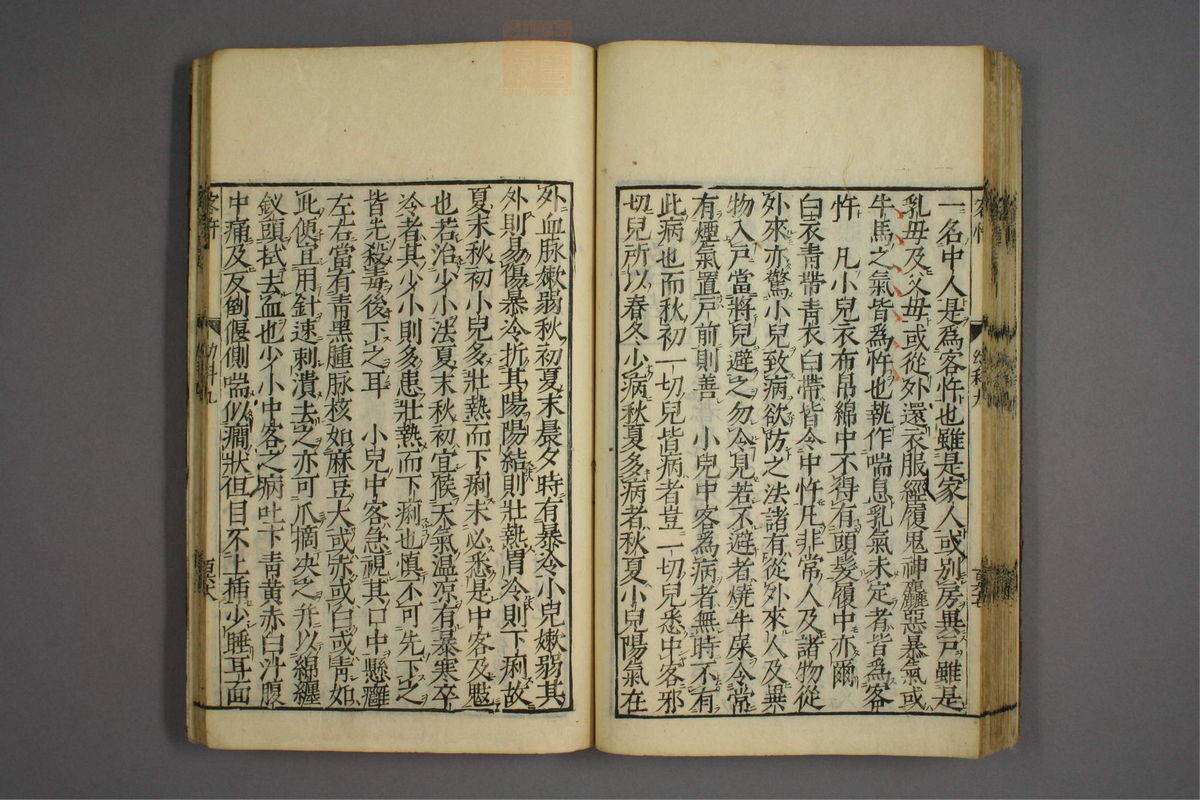 一名中人是為客忤也雖是家人或別房異戸雖是
乳母及父母或從外還衣服經履鬼神麤惡暴氣或
牛馬之氣皆為忤也執作喘息乳氣未定者皆為客
忤　凡小兒衣布帛綿中不得有頭髮履中亦爾
白衣青帶青衣白帶皆令中忤凡非常人及諸物從
外來亦驚小兒致病欲防之法諸有從外來人及異
物入戸當將兒避之勿令見若不避者燒牛屎令常
有煙氣置戸前則善　小兒中客為病者無時不有
此病也而秋初一切兒皆病者豈一切兒悉中客邪
切兒所以春冬少病秋夏多病者秋夏小兒陽氣在
外血脉嫩弱秋初夏末晨夕時有暴冷小兒嫩弱其
外則易傷暴冷折其陽陽結則壯熱胃冷則下痢故
夏末秋初小兒多壯熱而下痢未必悉是中客及鬾
也若治少小法夏末秋初宜候天氣温凉有暴寒卒
冷者其少小則多患壯熱而下痢也慎不可先下之
皆先殺毒後下之耳　小兒中客急視其口中懸雍
左右當有青黑腫脉核如麻豆大或赤或白或青如
此便宜用針速刺潰去之亦可爪摘决之并以綿纏
釵頭拭去血也少小中客之病吐下青黄赤白汁腹
中痛及反倒偃側喘似癇狀但目不上插少睡耳面
客忤
幼科九